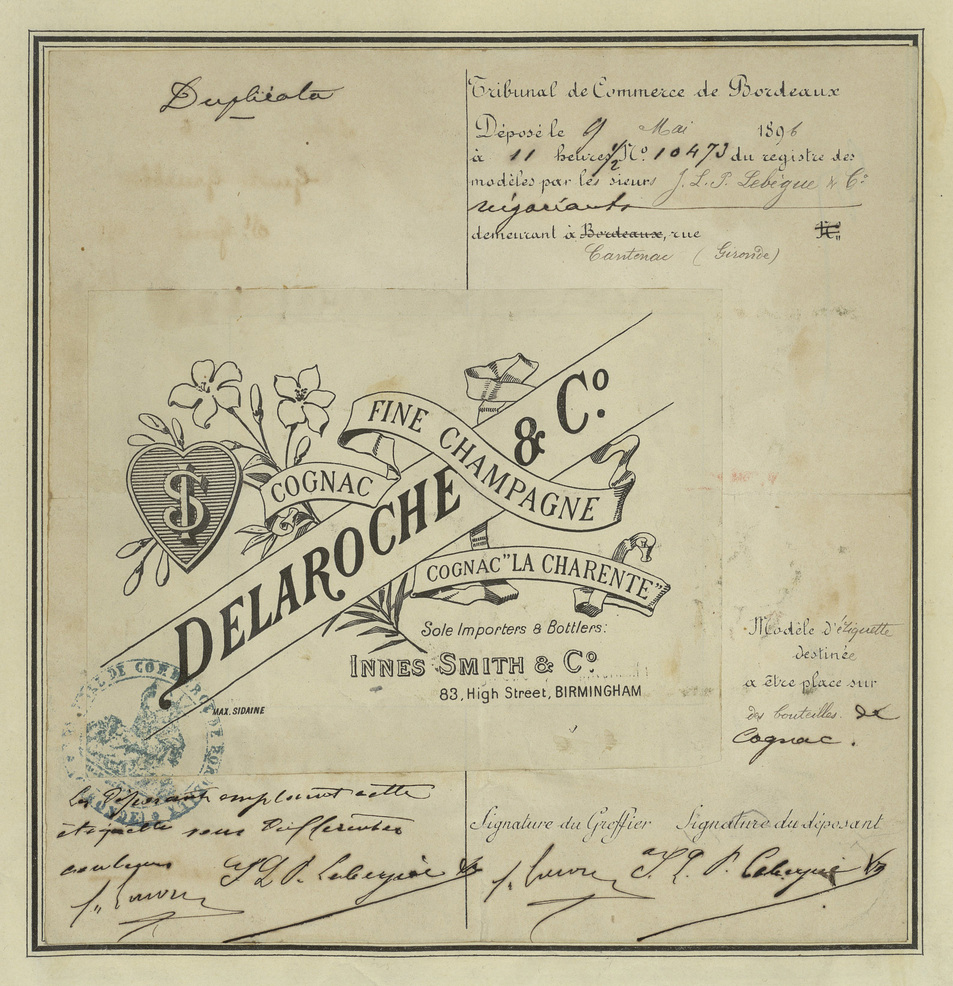 Duplicata
Tribunal de Commerce de Bordeaux
Déposé le 9 Mai 1896
à 11 heures 1/2 No. 10473 du registre des
modèles par les sieurs J. L. P. Lebègue & Cie
négociants
demeurant à Bordeaux, rue
Cantenac (Gironde)
FINE CHAMPAGNE
COGNAC
$
DELAROCHE & Co.
COGNAC "LA CHARENTE"
Sole Importers & Bottlers:
INNES SMITH & Co.
83, High Street, BIRMINGHAM
MAX. SIDAINE
Modèle d'étiquette
destinée
a être place sur
des bouteilles de
Cognac.
Les Déposants emploient cette
étiquette sous différentes
couleurs
J. L. P. Lebègue
Signature du Greffier Signature du déposant
J. L. P. Lebègue